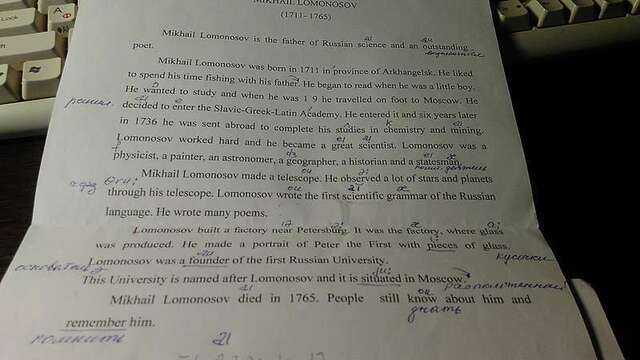 MIKHAIL LOMONOSOV
(1711- 1765)
Mikhail Lomonosov is the father of Russian science and an outstanding
poet.
Mikhail Lomonosov was born in 1711 in province of Arkhangelsk. He liked
to spend his time fishing with his father. He began to read when he was a little boy.
He wanted to study and when he was 1 9 he travelled on foot to Moscow. He
решил
decided to enter the Slavic-Greek-Latin Academy. He entered it and six years later
in 1736 he was sent abroad to complete his studies in chemistry and mining.
Lomonosov worked hard and he became a great scientist. Lomonosov was a
physicist, a painter, an astronomer, a geographer, a historian and a statesman.
Mikhail Lomonosov made a telescope. He observed a lot of stars and planets
through his telescope. Lomonosov wrote the first scientific grammar of the Russian
language. He wrote many poems.
Lomonosov built a factory near Petersburg. It was the factory, where glass
was produced. He made a portrait of Peter the First with pieces of glass.
кусочки
Lomonosov was a founder of the first Russian University.
This University is named after Lomonosov and it is situated in Moscow.
Mikhail Lomonosov died in 1765. People still know about him and
знать
remember him.
помнить